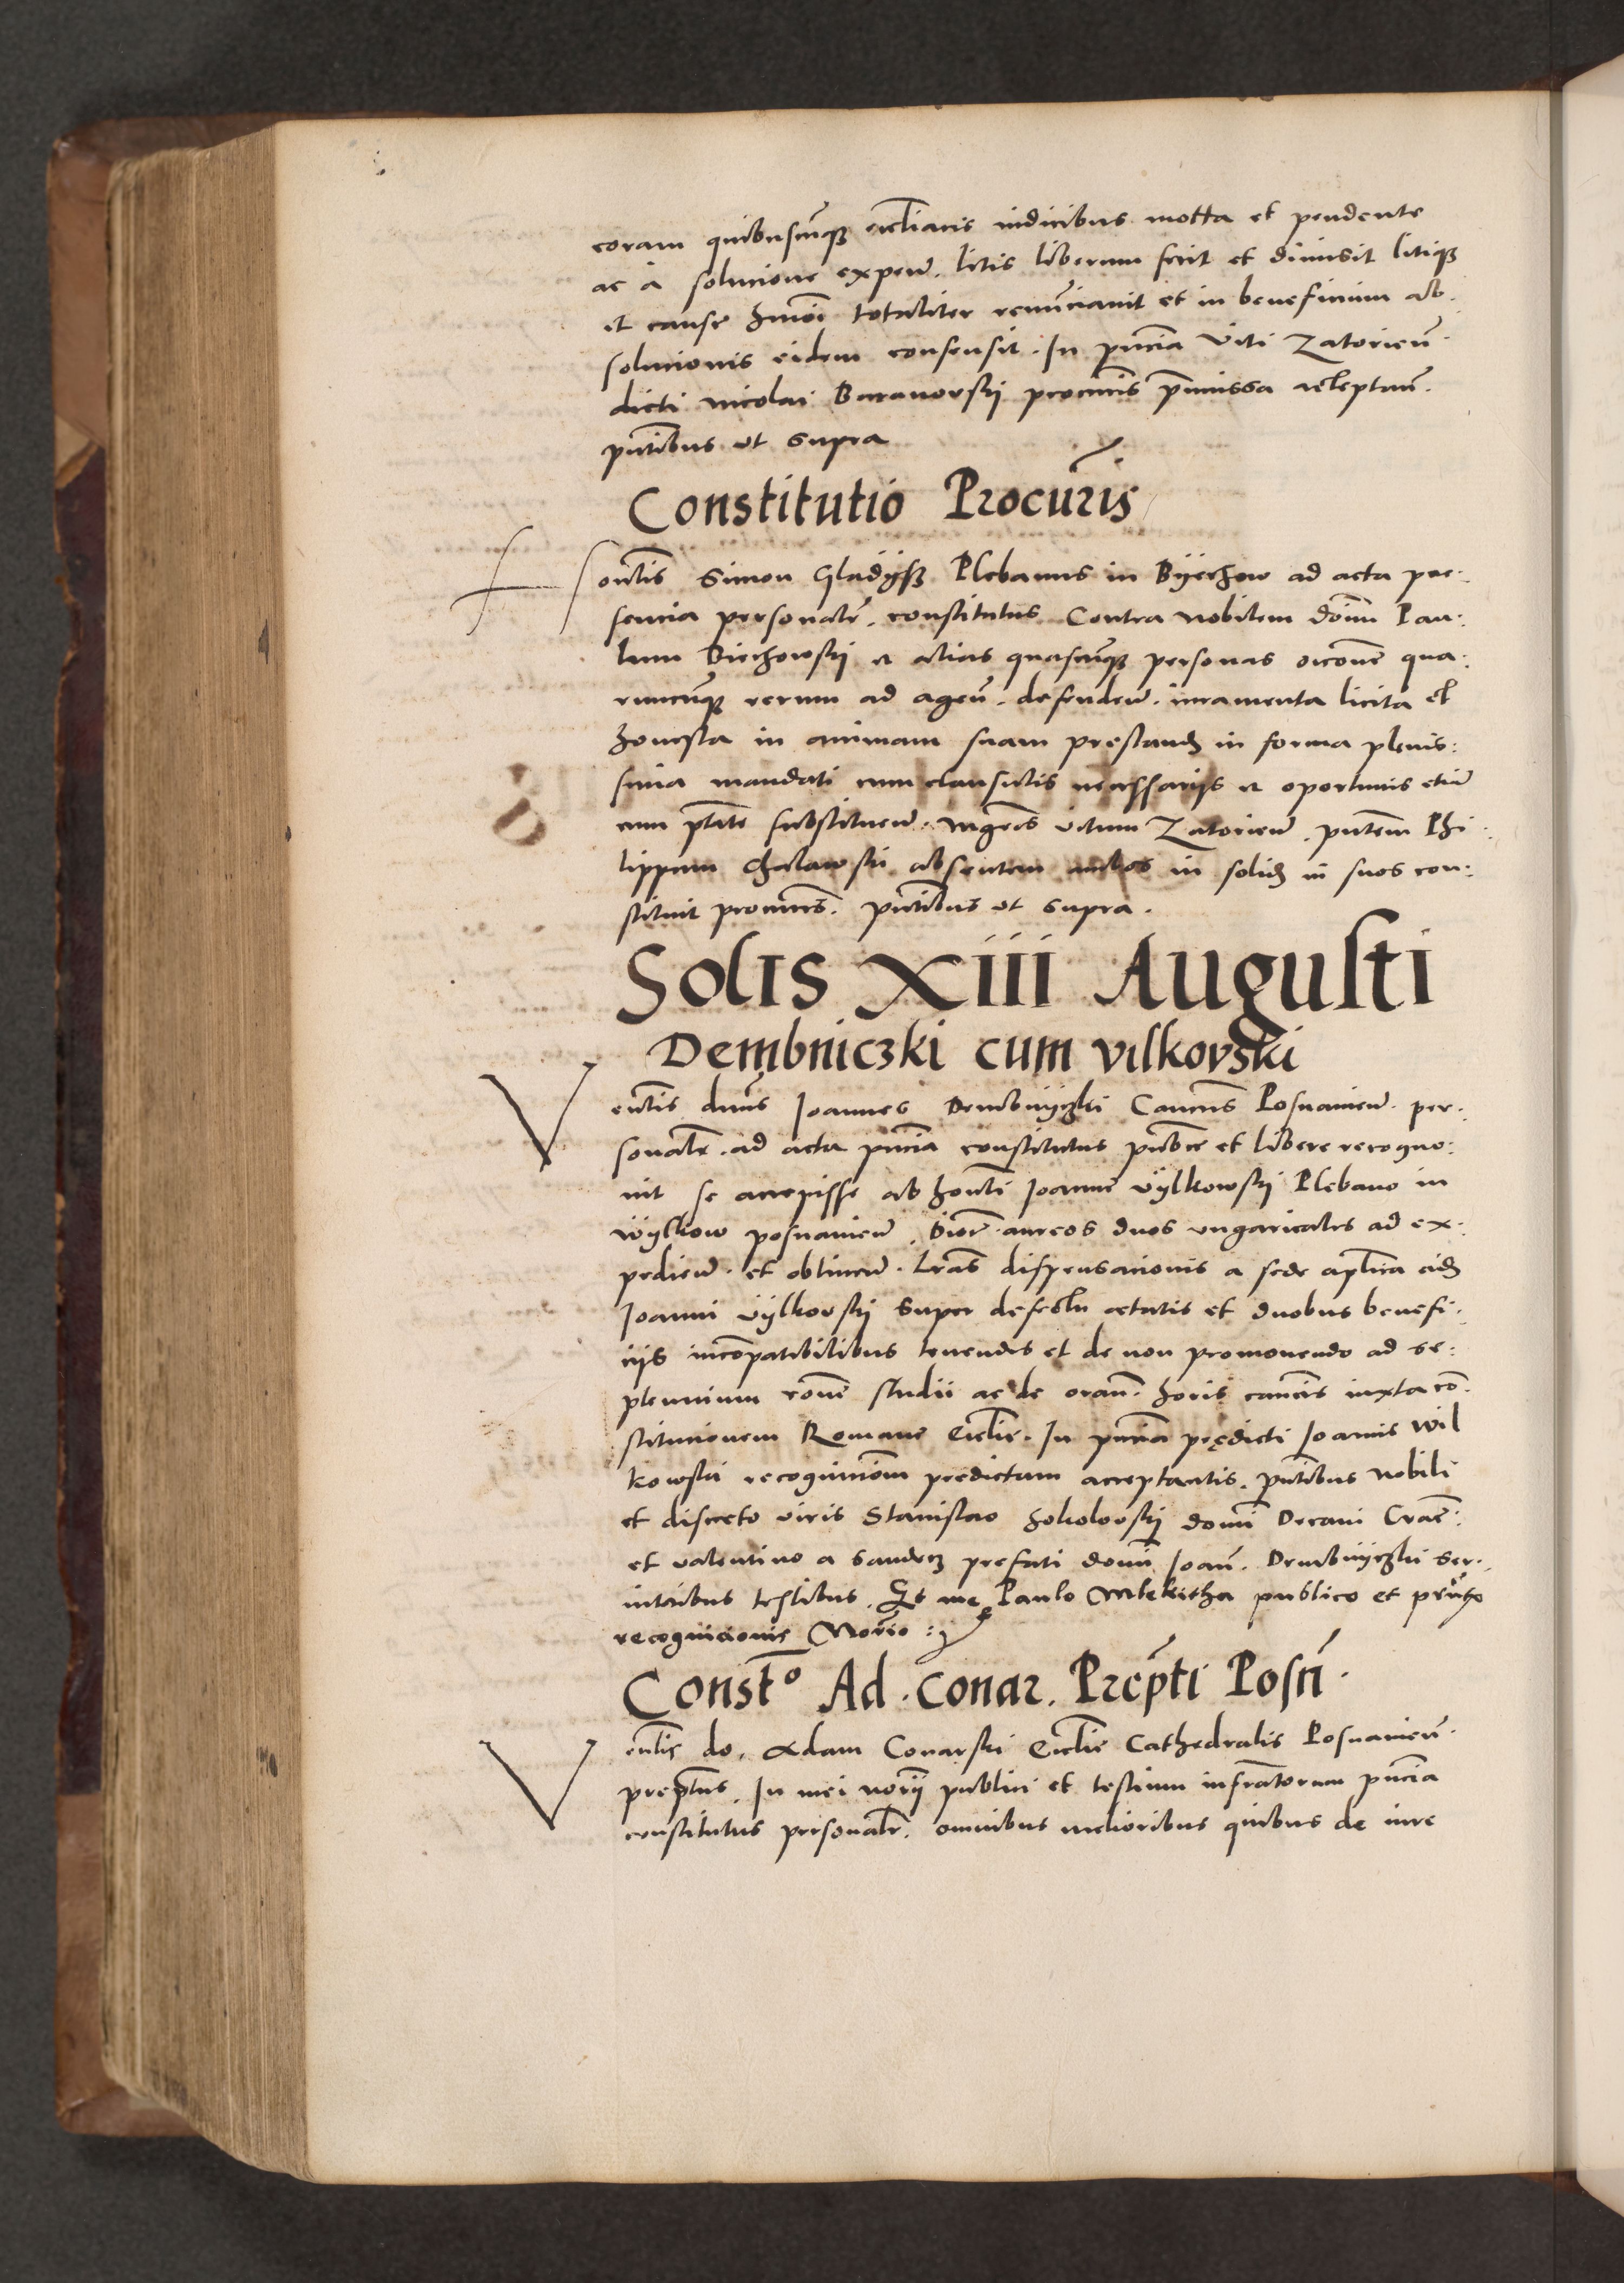 coram quibuscunq̃ȝ eccl̃iacis iudicibus motta et pendente
ac à solucione expeñ. litis liberum fecit et dimisit litiqȝ
et cause hm̃oi totaliter renũciauit et in beneficium ab.
solucionis eidem consensit. In pñcia Viti Zatorieñ.
dicti Nicolai Baranovskij procũris p̃missa acceptañ.
pñtibus vt supra
Constitutio Procũris
Honl̃is Simon Gladijsch Plebanus in Bijechow ad acta pre:
sencia personalr̃. constitutus Contra Nobilem dom̃ Pau:
lum Biechowskij et alias quascũqȝ personas occ̃one qua:
rumcũqȝ rerum ad ageñ. defendeñ. iuramenta licita et
honesta in animam suam prestandȝ in forma plenis:
sima mandati cum clausulis necessarijs et oportunis etiã
cum ptãte substitueñ. mgr̃os vitum Zatorieñ. pñtem Phi
lippum absentem ambos in solidȝ in suos con:
stituit procũres. pñtibus vt supra.
Solis XIII Augusti
Dembniczki cum vilkovski
Venl̃is dñus Joannes Dembnijczki Canc̃us Posnanieñ. per.
sonalr̃. ad acta pñcia constitutus pub̃ce et libere recogno:
uit se accepisse ab honl̃i Joanne Vÿlkowskij Plebano in
Wÿlkow posnanieñ. dioc̃. aureos duos vngaricales ad ex.
pedieñ. et obtineñ. l̃ras dispensacionis a sede ap̃lica eidȝ
Joanni Vÿlkovskij super defectu aetatis et duobus benefi.
cijs incõpatibilibus tenendis et de non promouendo ad se:
ptennium rõne studii ac de orañ. horis canc̃is iuxta cõ.
stitucionem Romane Eccl̃ie. In pñcia prędicti Joannis Wil
kowski recognic̃om predictam acceptantis. pñtibus Nobili
et discreto viris Stanislao Sokolovskij domĩ Decani Crac̃.
et valentino a Sandecz prefati domĩ Joañ. Dembnijczki ser.
uitoribus testibus. Et me Paulo Mlekicha publico et
recognicionis Notr̃io :
Const̃º Ad. Conar. Prep̃ti Posñ.
Venl̃is do. Adam Conarski Eccl̃ie Cathedralis Posnanieñ.
prep̃tus. In mei nor̃ij publici et testium infrãtorum pñcia
constitutus personalr̃. omnibus melioribus quibus de iure